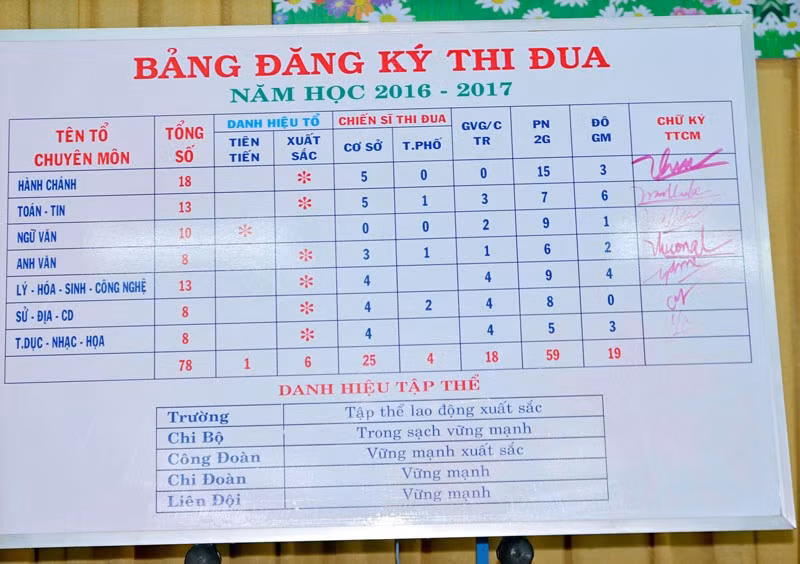 BẢNG ĐĂNG KÝ THI ĐUA
NĂM HỌC 2016 - 2017
TÊN TỔ CHUYÊN MÔN TỔNG SỐ DANH HIỆU TỔ CHIẾN SĨ THI ĐUA GVG/C TR PN 2G ĐÔ GM CHỮ KÝ TTCM
TIÊN TIẾN XUẤT SẮC CƠ SỞ T.PHỐ
HÀNH CHÁNH 18 * 5 0 0 15 3
TOÁN - TIN 13 * 5 1 3 7 6
NGỮ VĂN 10 * 0 0 2 9 1
ANH VĂN 8 * 3 1 1 6 2
LÝ - HÓA - SINH - CÔNG NGHỆ 13 * 4 4 9 4
SỬ - ĐỊA - CD 8 * 4 2 4 8 0
T.DỤC - NHẠC - HỌA 8 * 4 4 5 3
78 1 6 25 4 18 59 19
DANH HIỆU TẬP THỂ
Trường Tập thể lao động xuất sắc
Chi Bộ Trong sạch vững mạnh
Công Đoàn Vững mạnh xuất sắc
Chi Đoàn Vững mạnh
Liên Đội Vững mạnh